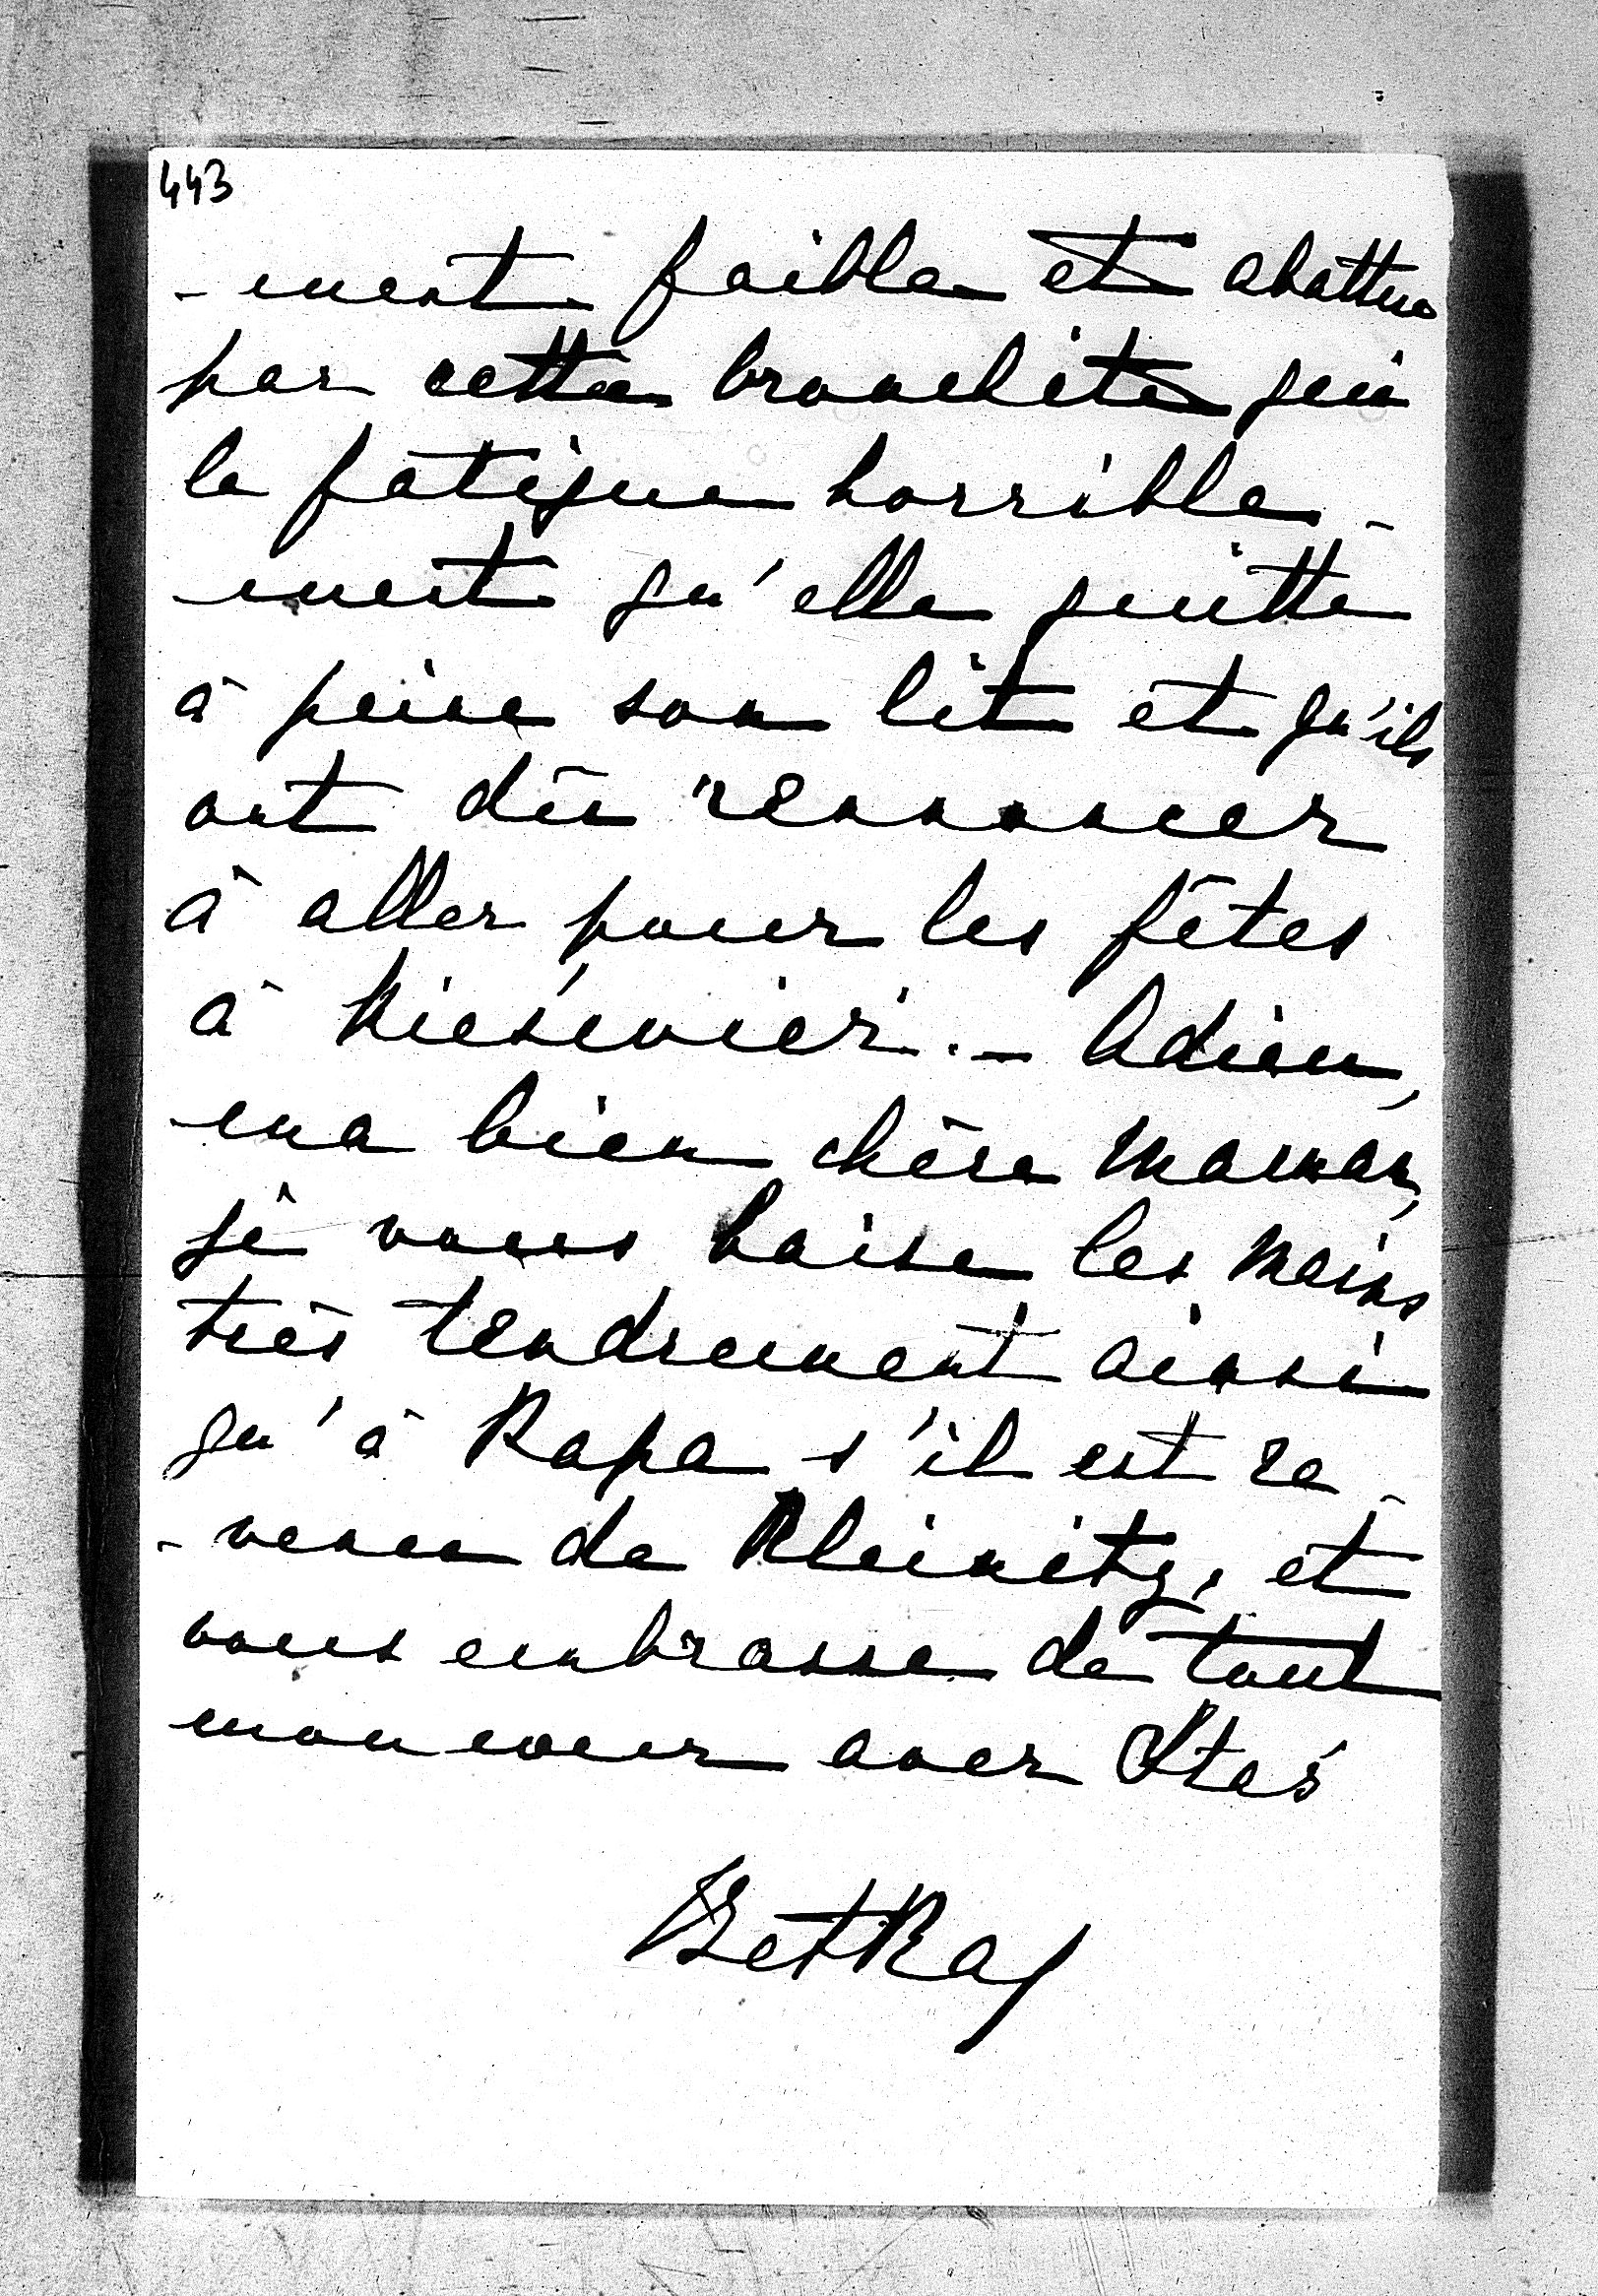 443
-ment faible et abattue
par cette bronchite qui
la fatigue horrible-
ment qu'elle quitte
à peine son lit et qu'ils
ont dû renoncer
à aller pour les fêtes
à Nieświeź. - Adieu,
ma bien chère Maman,
je vous baise les mains
très tendrement ainsi
qu'à Papa s'il est re-
-venu de Kleinitz, et
vous embrasse de tout
mon coeur avec